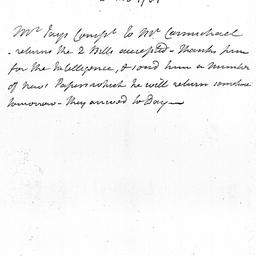 Mr Jays Compts to Mr Carmichael
- returns the 2 Bills accepted - thanks him
for the Intelligence, & send him a number
of News Papers which he will return sometime
tomorrow - They arrived to Day -